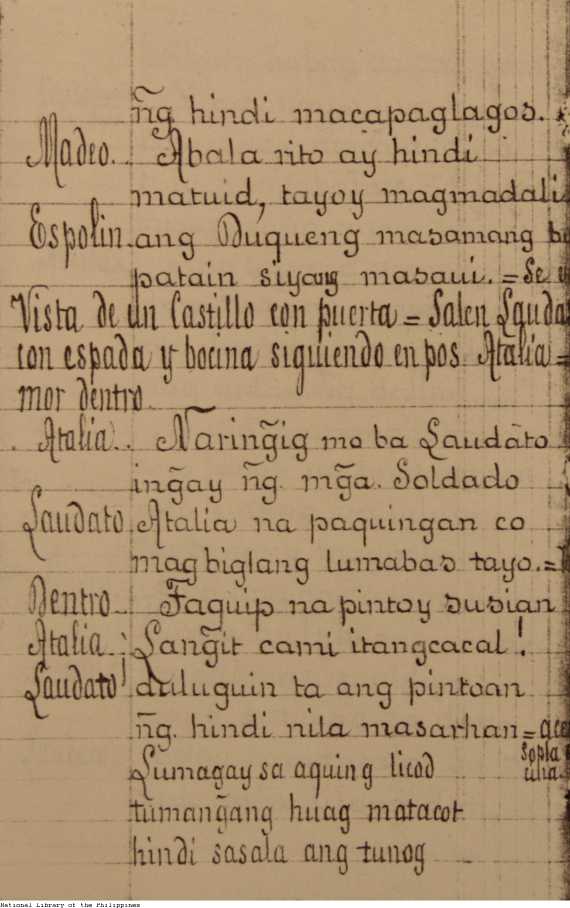 n͠g hindi macapaglagos.
Madeo. Abala rito ay hindi
matuid, tayoy magmadali
Espolin. ang Duqueng masamang
patain siyang masaui. = Se
Vista de un Castillo con puerta = Salen
con espada y bocina siguiendo en pos. Atalia =
mor dentro
Atalia. Naring̃ig mo ba Laudato
ing̃ay n͠g. mg̃a. Soldado
Laudato Atalia na paquingan co
magbiglang lumabas tayo. =
Dentro. Taquip na pintoy susian
Atalia. Lang̃it cami itangcacal!
Laudato duluguin ta ang pintoan
n͠g. hindi nila masarhan =
sopla
Lumagay sa aquing licod
tumang̃ang huag matacot
hindi sasala ang tunog
National Library of the Philippines